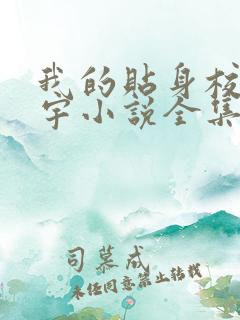 我的贴身校
宇小说全集
司慕成
未经同意禁止转载